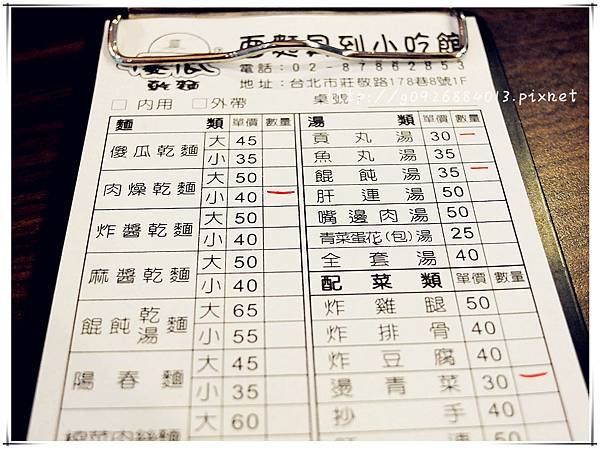 面麵具到小吃館
傻瓜
乾麵
電話：02-87862853
地址：台北市莊敬路178巷8號1F
□ 內用 □ 外帶 桌號
麵 類 單價 數量
傻瓜乾麵 大 45
小 35
肉燥乾麵 大 50
小 40 一
炸醬乾麵 大 50
小 40
麻醬乾麵 大 50
小 40
餛飩乾湯麵 大 65
小 55
陽春麵 大 45
小 35
大 60
湯 類 單價 數量
貢丸湯 30 一
魚丸湯 35
餛飩湯 35 一
肝連湯 50
嘴邊肉湯 50
青菜蛋花(包)湯 25
全套湯 40
配菜類 單價 數量
炸雞腿 50
炸排骨 40
炸豆腐 40
燙青菜 30 一
抄手 40
50